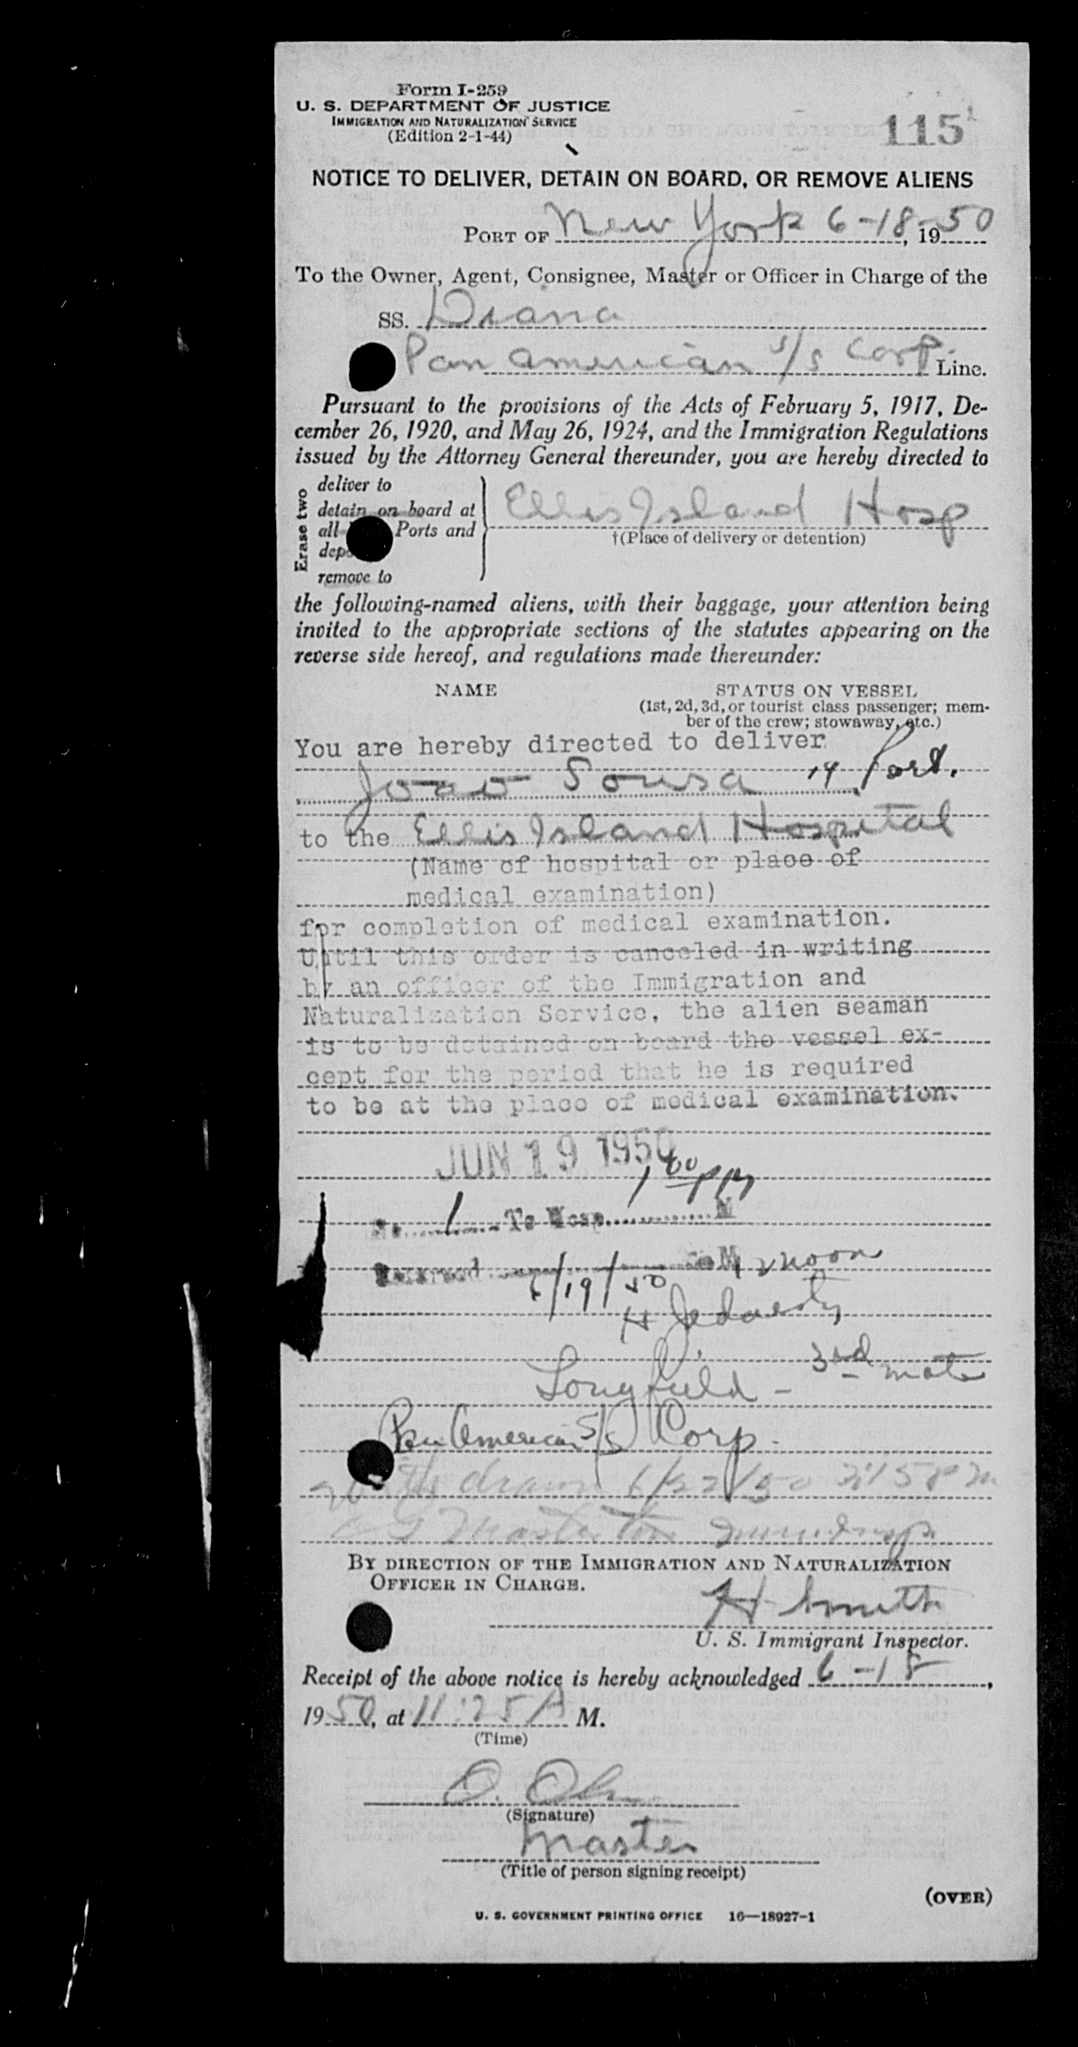 Form I-259
U. S. DEPARTMENT OF JUSTICE
IMMIGRATION AND NATURALIZATION SERVICE
(Edition 2-1-44)
115
NOTICE TO DELIVER, DETAIN ON BOARD, OR REMOVE ALIENS
PORT OF New York 6-18-, 1950
To the Owner, Agent, Consignee, Master or Officer in Charge of the
SS. Diana
Pan American s/s Corp. Line.
Pursuant to the provisions of the Acts of February 5, 1917, De-
cember 26, 1920, and May 26, 1924, and the Immigration Regulations
issued by the Attorney General thereunder, you are hereby directed to
Erase two
deliver to
detain on board at
all Ports and
remove to
Ellis Island Hosp
†(Place of delivery or detention)
the following-named aliens, with their baggage, your attention being
invited to the appropriate sections of the statutes appearing on the
reverse side hereof, and regulations made thereunder:
NAME STATUS ON VESSEL
(1st, 2d, 3d, or tourist class passenger; mem-
ber of the crew; stowaway, etc.)
You are hereby directed to deliver
Joao Sousa 19 Port.
to the Ellis Island Hospital
(Name of hospital or place of
medical examination)
for completion of medical examination.
Until this order is canceled in writing
by an officer of the Immigration and
Naturalization Service, the alien seaman
is to be detained on board the vessel ex-
cept for the period that he is required
to be at the place of medical examination.
JUN 19 1950
1 00 PM
No. 1 To Hosp. M
6/19/50 noon
H
Longfield - 3rd mate
Pan American S/S Corp.
withdrawn 6/22/50 58 PM
BY DIRECTION OF THE IMMIGRATION AND NATURALIZATION
OFFICER IN CHARGE.
H Smith
U. S. Immigrant Inspector.
Receipt of the above notice is hereby acknowledged 6-18,
1950, at 11:25 A M.
(Time)
O.
(Signature)
Master
(Title of person signing receipt)
(OVER)
U. S. GOVERNMENT PRINTING OFFICE 16—18927-1